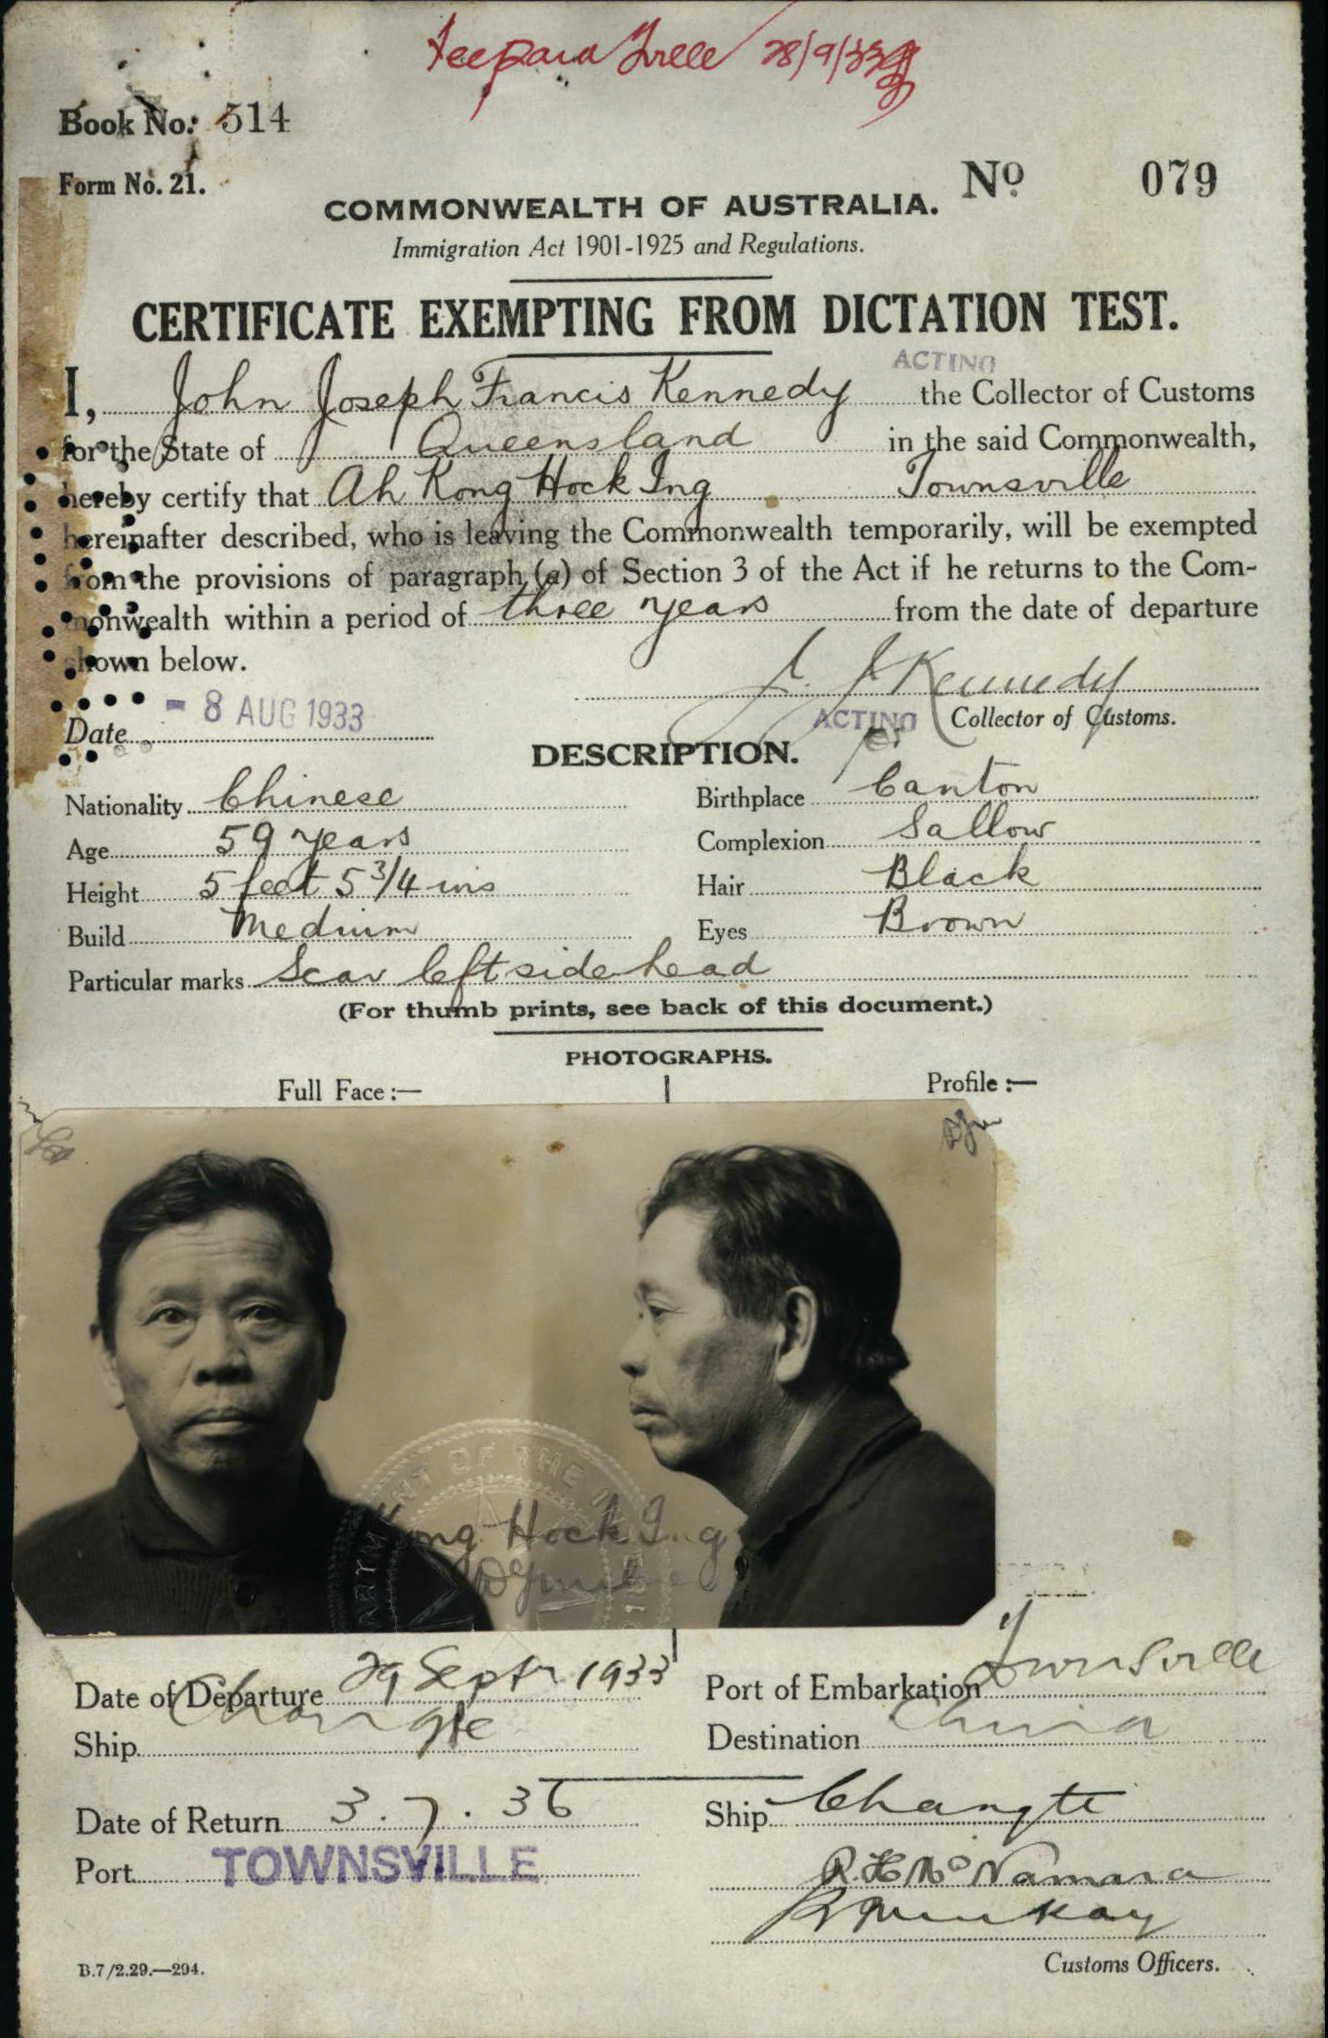 28/9/33
Book No. 514
Form No. 21.
No 079
COMMONWEALTH OF AUSTRALIA.
Immigration Act 1901-1925 and Regulations.
CERTIFICATE EXEMPTING FROM DICTATION TEST.
ACTING
I, John Joseph Francis Kennedy the Collector of Customs
for the State of Queensland in the said Commonwealth,
hereby certify that Ah Kong Hock Ing Townsville
hereinafter described, who is leaving the Commonwealth temporarily, will be exempted
from the provisions of paragraph (a) of Section 3 of the Act if he returns to the Com-
monwealth within a period of three years from the date of departure
shown below.
J. J. Kennedy
Date - 8 AUG 1933
ACTING Collector of Customs.
DESCRIPTION.
Nationality Chinese Birthplace Canton
Age 59 years Complexion Sallow
Height 5 feet 5 3/4 ins Hair Black
Build Medium Eyes Brown
Particular marks Scar left side head
(For thumb prints, see back of this document.)
PHOTOGRAPHS.
Full Face :— Profile :—
OF THE
Kong Hock Ing
Date of Departure 29 Septr 1933 Port of Embarkation Townsville
Ship Changte Destination China
Date of Return 3.7.36 Ship Changte
Port TOWNSVILLE R. H. McNamara
B.7/2.29.—294.
Customs Officers.